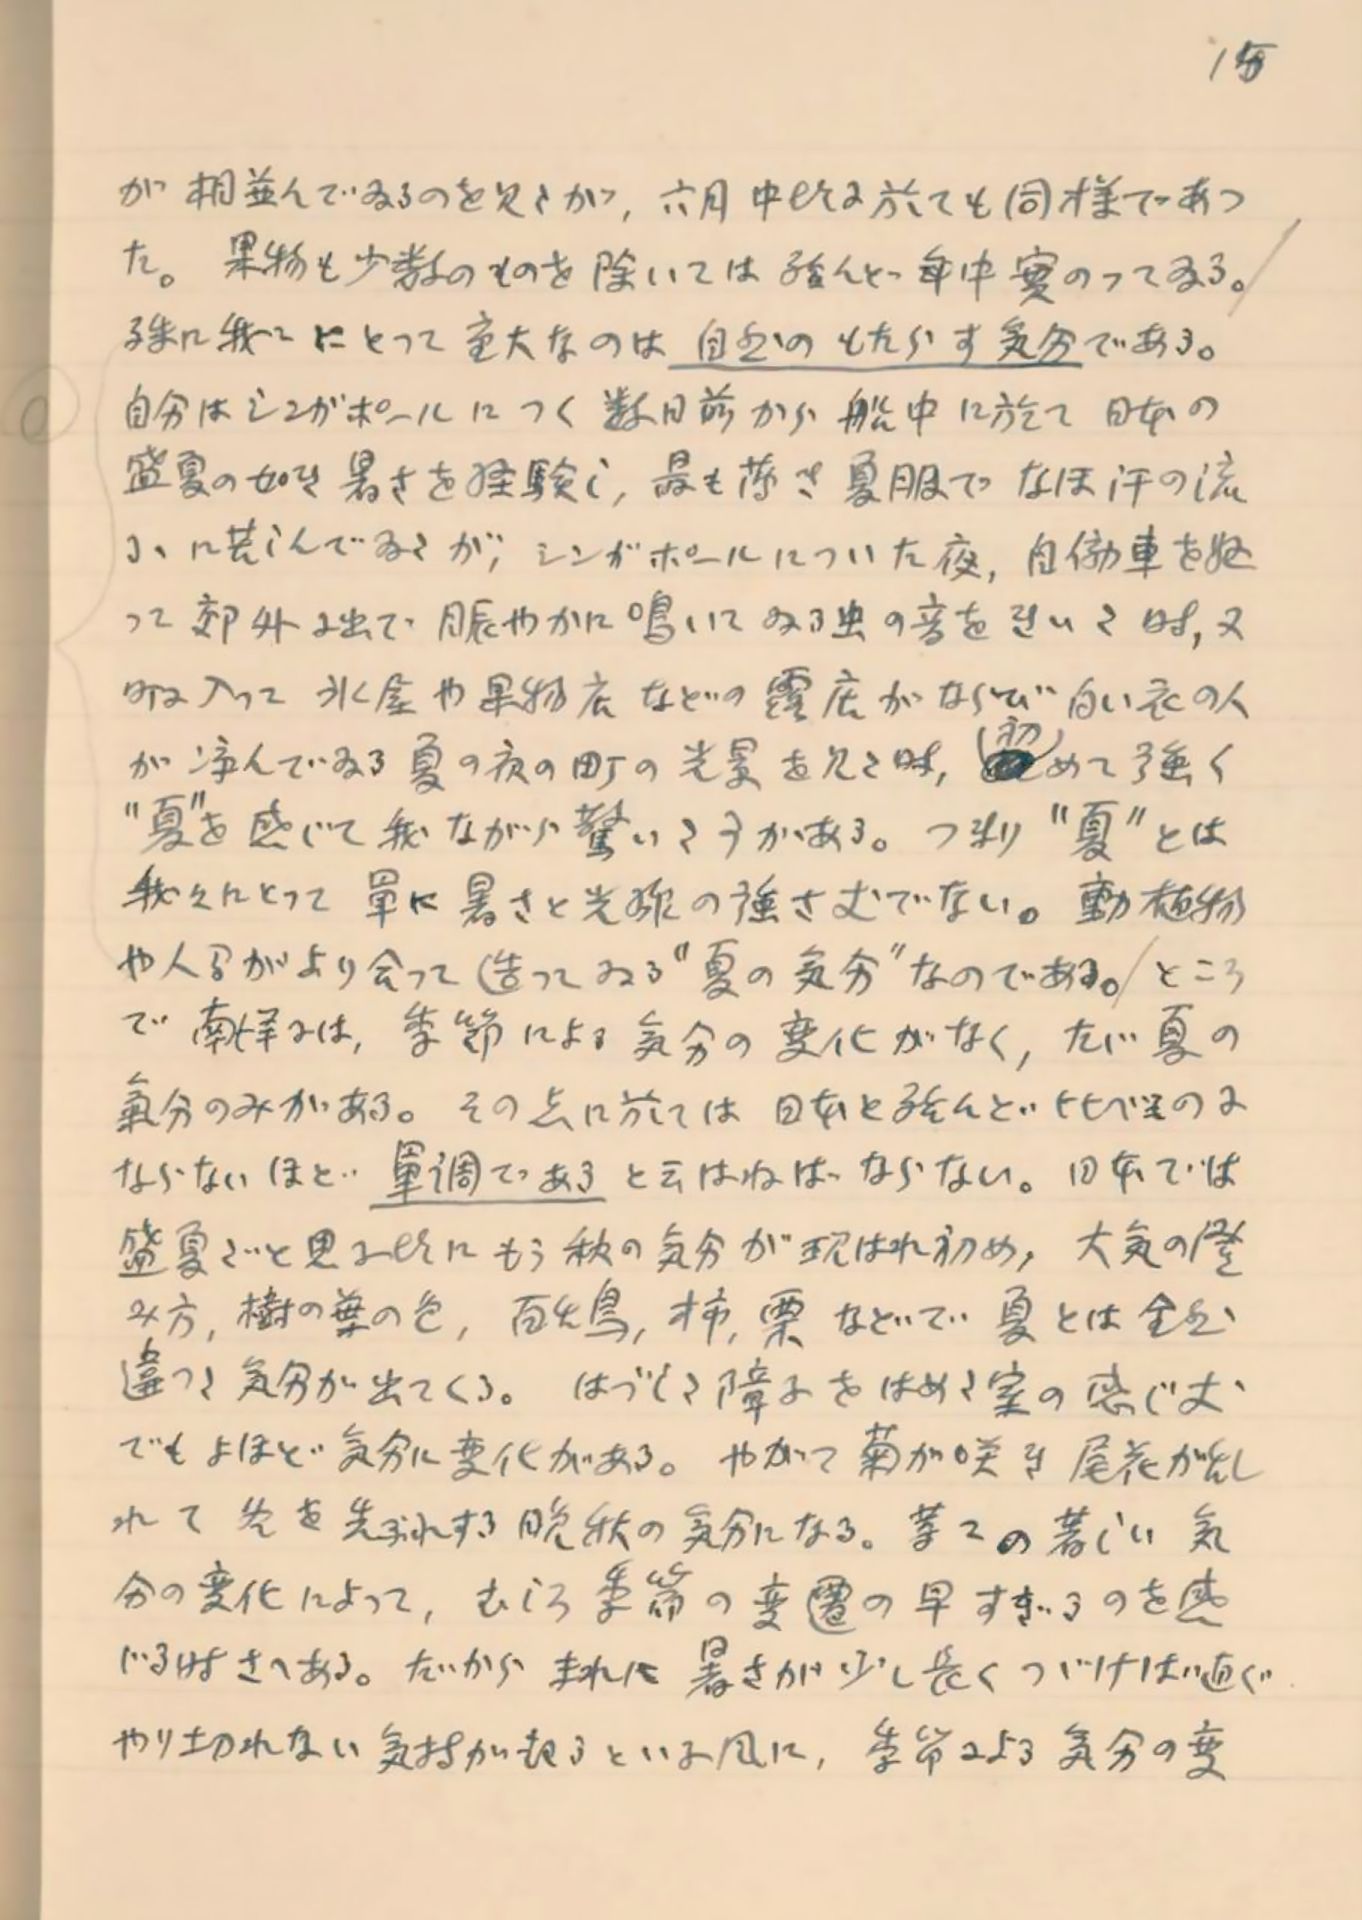 が相並んでゐるのを見たが，六月中ばに於ても同様であつ
た。 果物も少数のものを除いては殆んど年中實のつてゐる。
殊に我々にとつて重大なのは自然のもたらす気分である。
自分はシンガポールにつく数日前から船中に於て日本の
盛夏の如き暑さを経験し，最も薄き夏服でなほ汗の流
るゝに苦しんでゐたが，シンガポールについた夜，自働車を
つて郊外に出で賑やかに鳴いてゐる虫の音をきいた時，又
町に入つて氷屋や果物店などの露店がならび白い衣の人
が涼んでゐる夏の夜の町の光景を見た時，初めて強く
"夏"を感じて我ながら驚いた事がある。つまり"夏"とは
我々にとつて單に暑さと光線の強さ丈でない。動植物
や人間がより会つて造つてゐる"夏の気分"なのである。ところ
で南洋には，季節による気分の変化がなく，たゞ夏の
氣分のみがある。その点に於ては日本と殆んど比べものに
ならないほど單調であると云はねばならない。日本では
盛夏だと思ふ時にもう秋の気分が現はれ初め，大気の澄
み方，樹の葉の色，百舌鳥，柿，栗などで夏とは全然
違つた気分が出てくる。 はづした障子をはめた室の感じ丈
でもよほど気分に変化がある。やがて菊が咲き尾花が乱
れて冬を先ぶれする晩秋の気分になる。等々の著しい気
分の変化によつて，むしろ季節の変遷の早すぎるのを感
じる時さへある。だからまれに暑さが少し長くつゞけば直ぐ
やり切れない気持が起るといふ風に，季節による気分の変